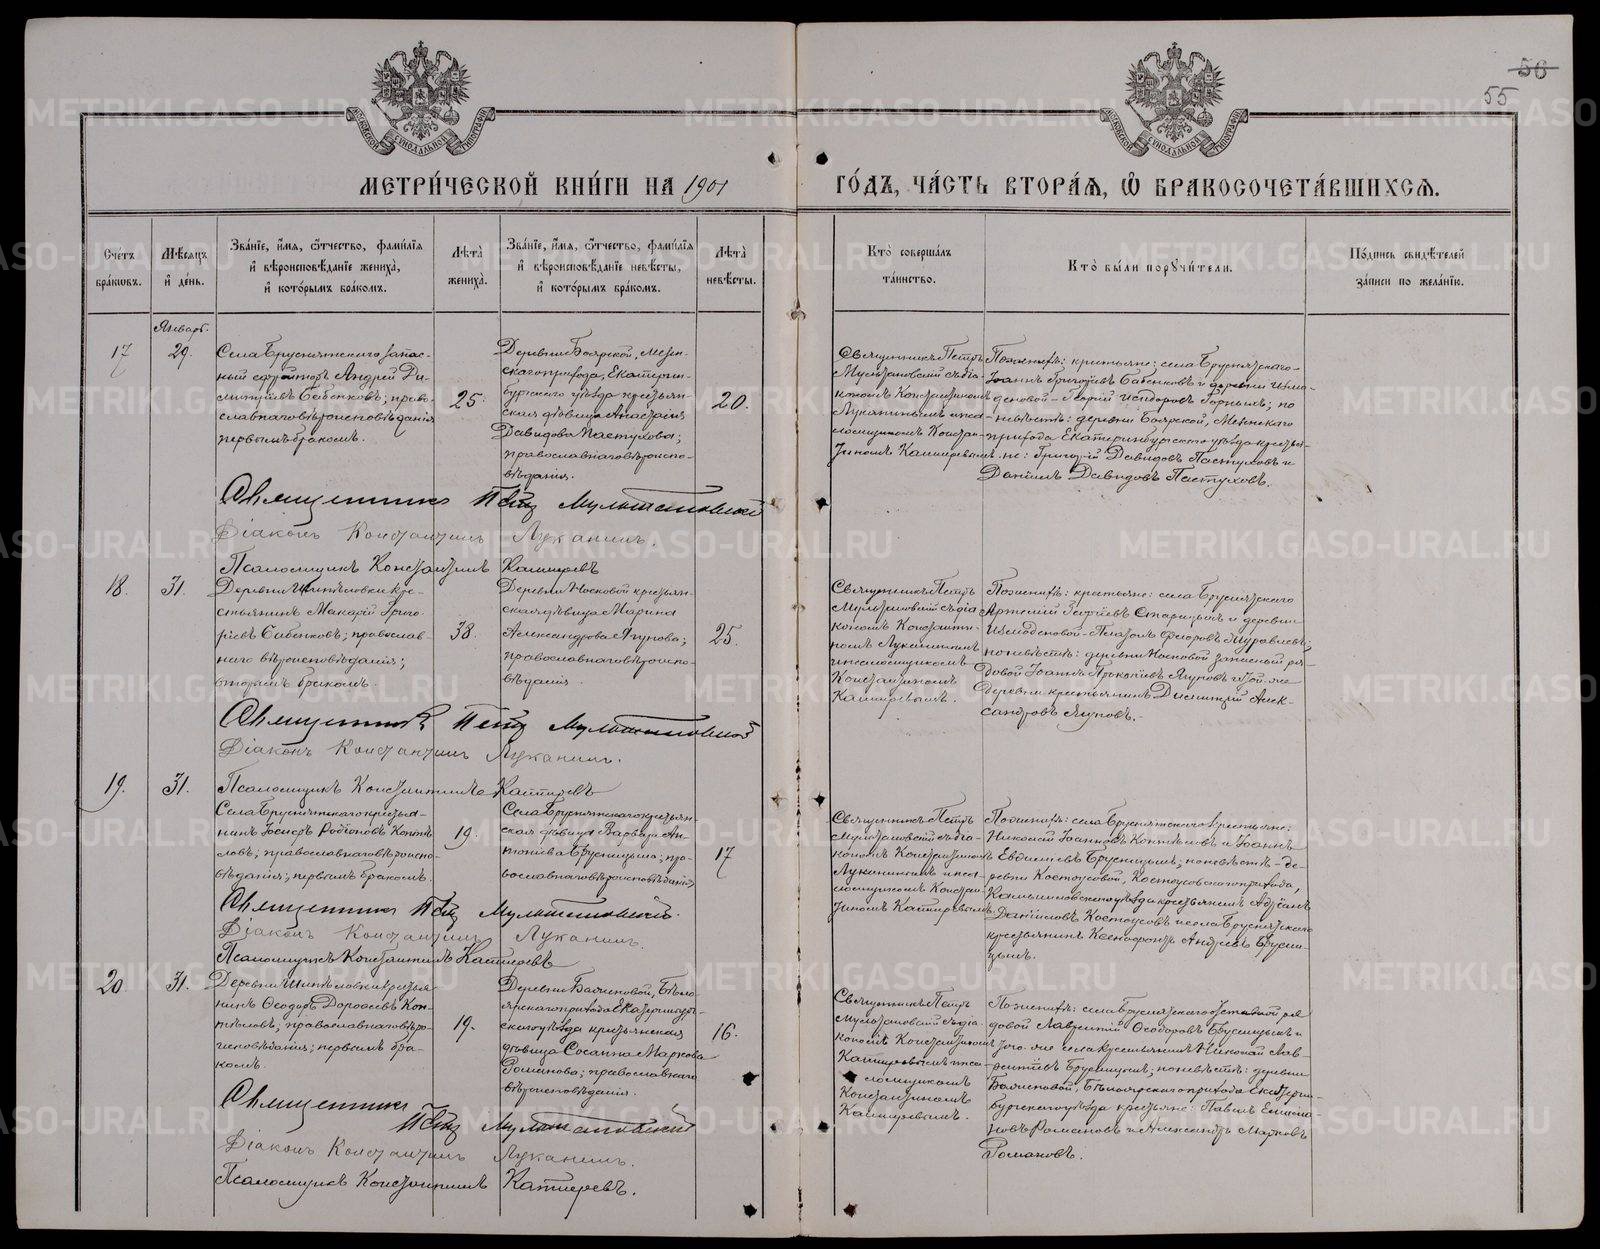 56
55
МЕТРИ́ЧЕСКОЙ КНИ́ГИ НА 1901
ГО́ДЪ, ЧА́СТЬ ВТОРА́Я, Ѽ БРАКОСОЧЕТА́ВШИХСЯ.
Сче́тъ бра́ковъ.
Мѣ́сяцъ и҆ де́нь.
Зва́нїе, и҆́мя, ѻ҆́тчество, фами́лїя
и҆ вѣроисповѣ́данїе жениха̀,
и҆ кото́рымъ бра́комъ.
Лѣта̀ жениха̀.
Зва́нїе, и҆́мя, ѻ҆́тчество, фами́лїя
и҆ вѣроисповѣ́данїе невѣ́сты,
и҆ кото́рымъ бра́комъ.
Лѣта̀ невѣ́сты.
Кто̀ соверша́лъ
та́инство.
Кто̀ бы́ли порꙋчи́тели.
По́дпись свидѣ́телей
за́писи по жела́нїю.
Январь.
17
29.
Села Бруснятскаго запас-
ный ефрейторъ Андрей Ди-
митріевъ Бабенковъ; право-
славнаго вѣроисповѣданія
первымъ бракомъ.
25.
Деревни Боярской, Мезен-
скаго прихода, Екатерин-
бургскаго уѣзда крестьян-
ская дѣвица Анастасія
Давидова Пастухова;
православнаго вѣроиспо-
вѣданія.
20.
Священникъ Петръ
Мультановскій съ діа-
кономъ Константиномъ
Луканинымъ и пса-
ломщикомъ Констан-
тиномъ Кашперевымъ.
По женихѣ: крестьяне: села Бруснятскаго-
Іоаннъ Григоріевъ Бабенковъ и деревни Измо-
деновой - Георгій Исидоровъ Горныхъ; по
невѣстѣ: деревни Боярской, Мезенскаго
прихода Екатеринбургскаго уѣзда крестья-
не: Григорій Давидовъ Пастуховъ и
Даніилъ Давидовъ Пастуховъ.
Священникъ Петръ Мультановскій
Діаконъ Константинъ Луканинъ.
Псаломщикъ Константинъ Кашперевъ
18.
31.
Деревни Шипѣловки кре-
стьянинъ Макарій Григо-
ріевъ Бабенковъ; православ-
наго вѣроисповѣданія;
вторымъ бракомъ.
38.
Деревни Носковой крестьян-
ская дѣвица Марина
Александрова Ягупова;
православнаго вѣроиспо-
вѣданія
25.
Священникъ Петръ
Мультановскій съ діа-
кономъ Константи-
номъ Луканинымъ
и псаломщикомъ
Константиномъ
Кашперевымъ.
По женихѣ: крестьяне: села Бруснятскаго
деревни
невѣстѣ: деревни Носковой запасный ря-
довой Іоаннъ Прокопіевъ Ягуповъ и той-же
деревни крестьянинъ Димитрій Алек-
сандровъ Ягуповъ.
Священникъ Петръ Мультановскій
Діаконъ Константинъ Луканинъ.
Псаломщикъ Константинъ Кашперевъ
19.
31.
Села Бруснятскаго крестья-
нинъ Іосифъ Родіоновъ Коптѣ-
ловъ; православнаго вѣроиспо-
вѣданія; первымъ бракомъ.
19.
Села Бруснятскаго крестьян-
ская дѣвица Варвара Ан-
тоніева Брусницына; пра-
вославнаго вѣроисповѣданія;
17
Священникъ Петръ
Мультановскій съ діа-
кономъ Константиномъ
Луканинымъ и пса-
ломщикомъ Констан-
тиномъ Кашперевымъ.
По женихѣ: села Бруснятскаго крестьяне:
Николай Іоанновъ Коптѣловъ и Іоаннъ
Брусницынъ; по невѣстѣ - де-
ревни Костоусовой, Костоусовскаго прихода,
крестьянинъ Адріанъ
Даніиловъ Костоусовъ и села Бруснятскаго
крестьянинъ Ксенофонтъ Андреевъ Брусни-
цынъ.
Священникъ Петръ Мультановскій.
Діаконъ Константинъ Луканинъ.
Псаломщикъ Константинъ Кашперевъ
20
31.
Деревни Шипѣловки крестья-
нинъ Ѳеодоръ Дороѳеевъ Коп-
тѣловъ; православнаго вѣро-
исповѣданія; первымъ бра-
комъ.
19.
Деревни Баяниновой, Бѣло-
ярскаго прихода Екатеринбур-
скаго уѣзда крестьянская
дѣвица Сосанна Маркова
Романова; православнаго
вѣроисповѣданія.
16.
Священникъ Петръ
Мультановскій съ діа-
кономъ Константиномъ
Кашперевымъ и пса-
ломщикомъ
Константиномъ
Кашперевымъ.
По женихѣ: села Бруснятскаго отставной ря-
довой Лаврентій Ѳеодоровъ Брусницынъ и
того-же села крестьянинъ Николай Лав-
рентіевъ Брусницынъ; по невѣстѣ: деревни
Баяниновой, Бѣлоярскаго прихода Екатерин-
бургскаго уѣзда крестьяне: Павелъ
Романовъ и Александръ Марковъ
Романовъ.
Священникъ
Петръ Мультановскій
Діаконъ Константинъ Луканинъ.
Псаломщикъ Константинъ Кашперевъ.
METRIKI.GASO-URAL.RU